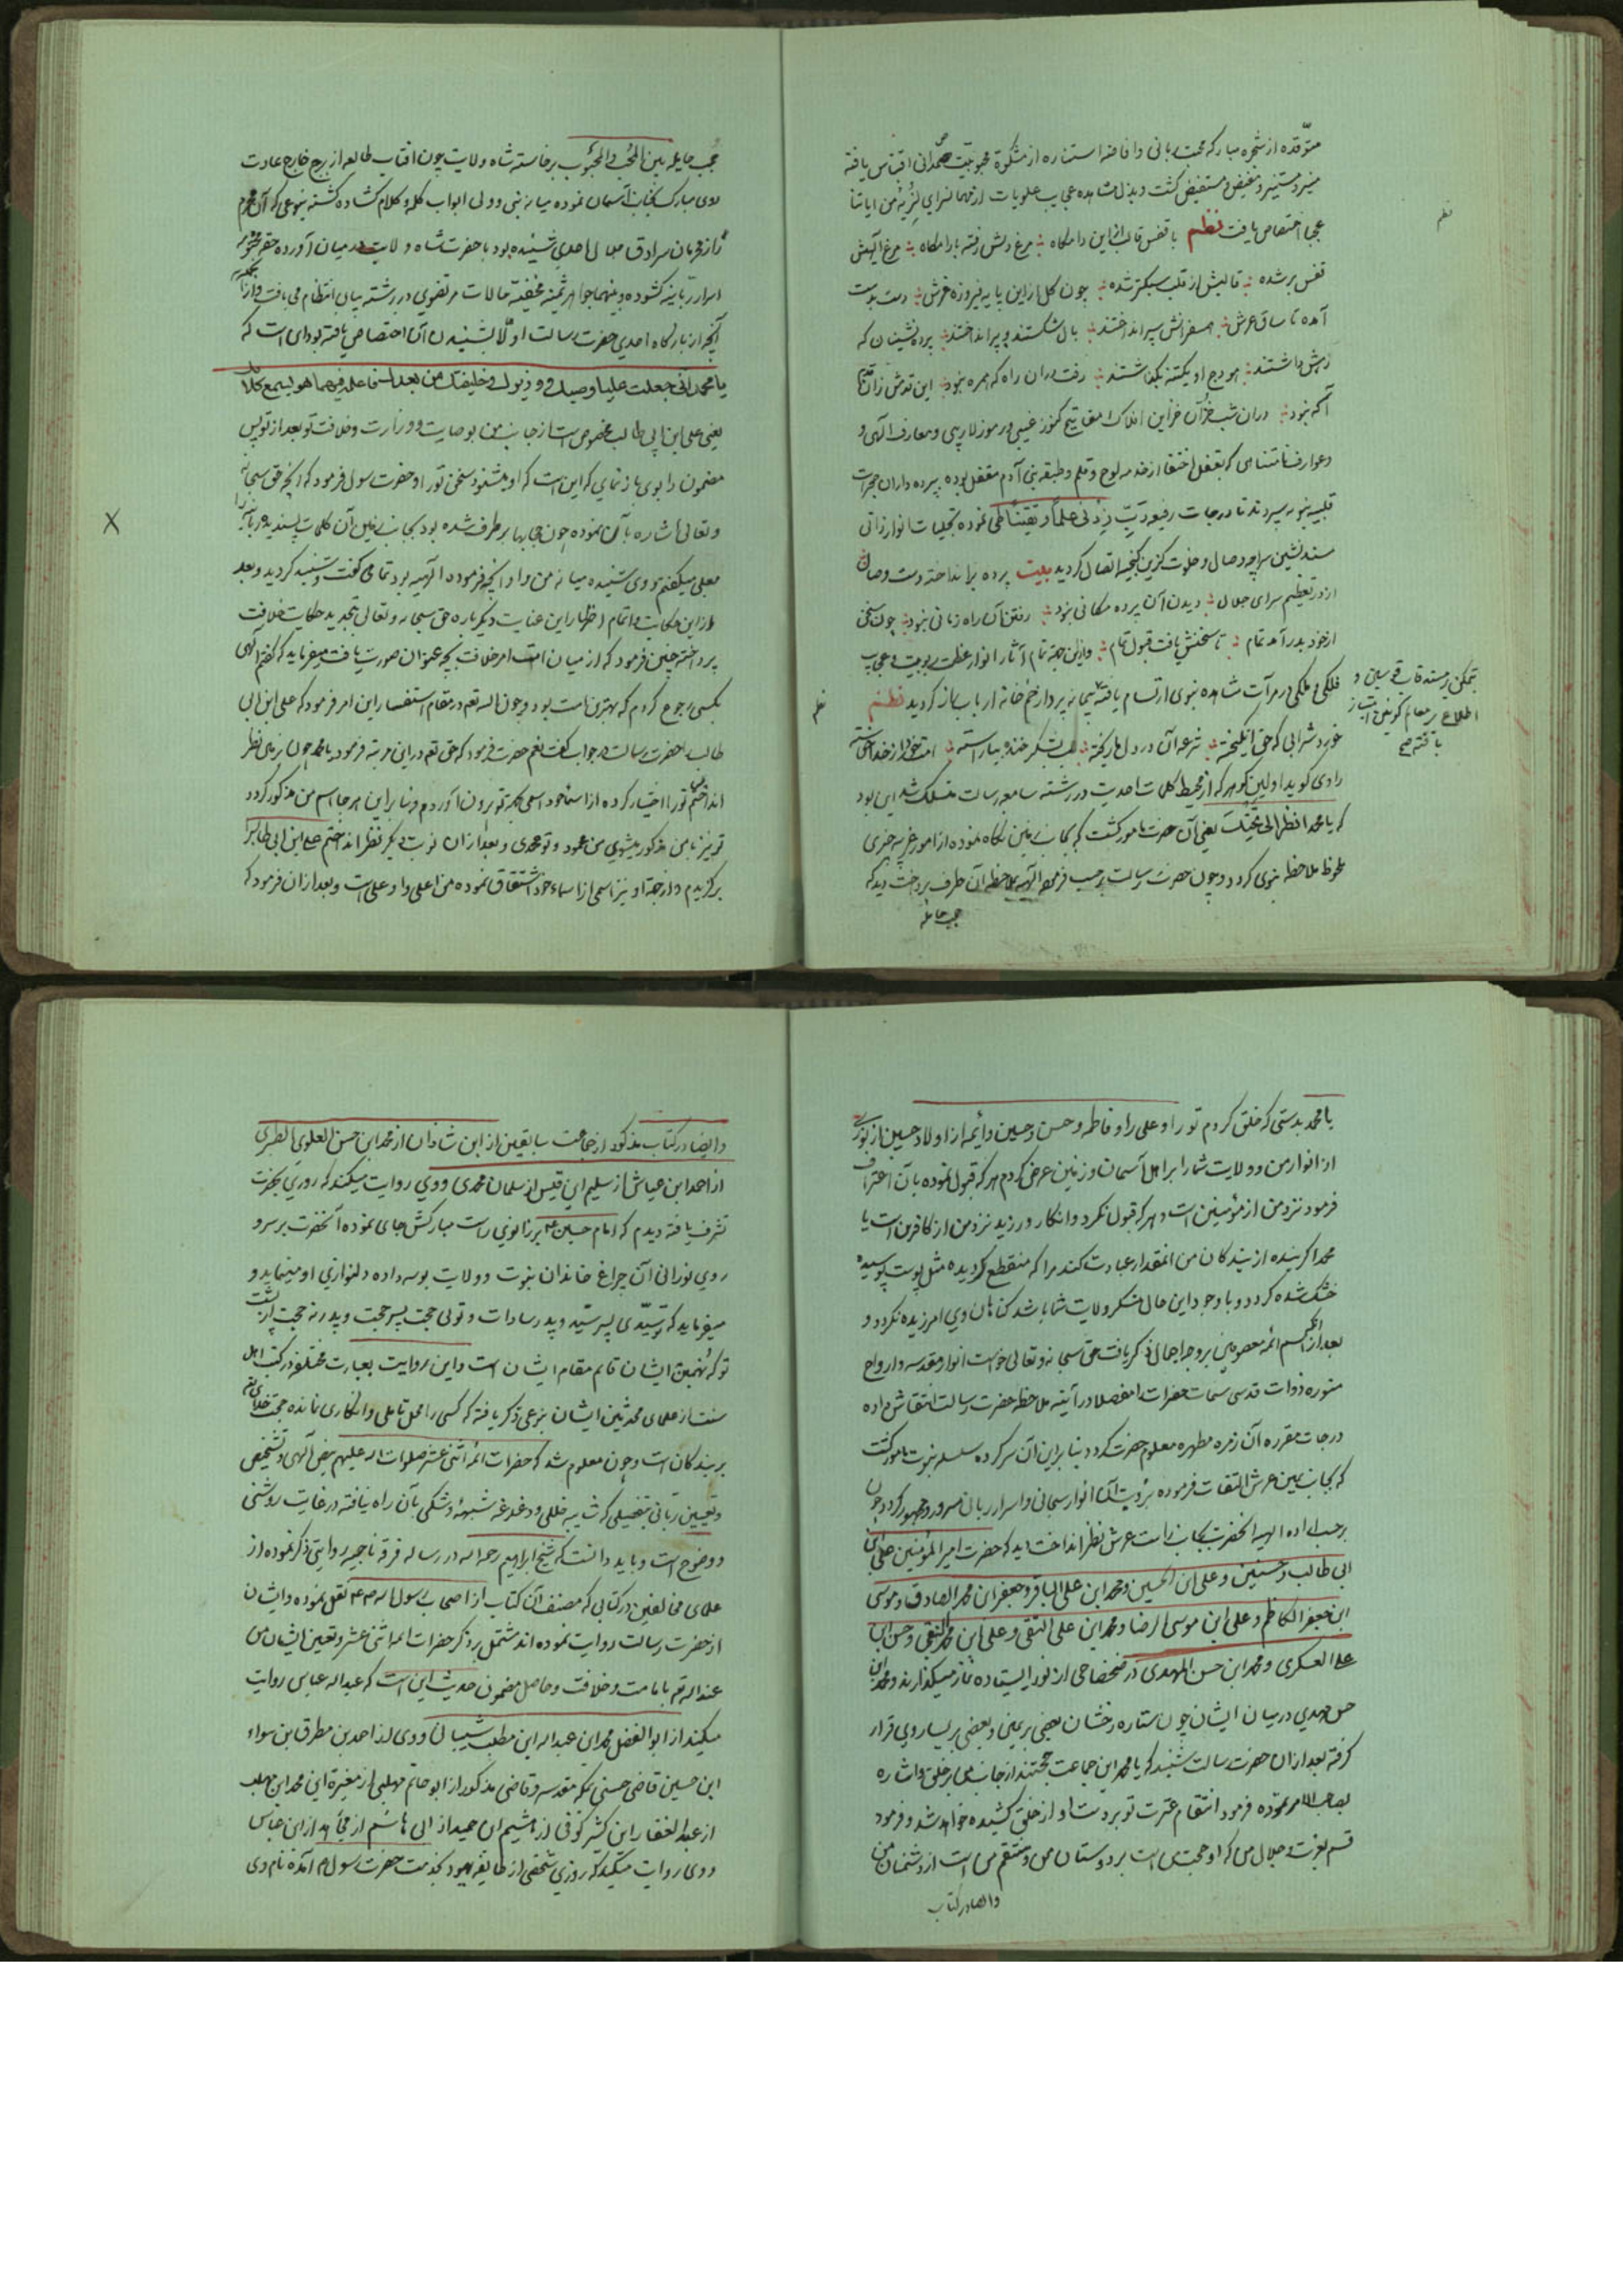 متوقده از شجره مباركه محبت ربانی و افاضه استناره از مشكوة محبوبیت صمدانی اقتباس یافته
منیر و مستنیر و مفیض و مستفیض گشت و بدل مشاهده عجایب علویات از نهانسرای لنریه من ایاتنا
عجبا اختصاص یافت نظم با قفس قالب ازین دامگاه مرغ دلش رفته بارامگاه مرغ الهیش
قفس بر شده قالبش از قلب سبكتر شده چون گل ازاین پایه فیروزه فرش دست بدست
آمده تا ساق عرش همسفرانش سپر انداختند بال شكستند و پر انداختند پرده نشینان كه
رهش داشتند هودج او یكتنه بگذاشتند رفت دران راه كه همره نبود این قدمش زان قدم
آگه نبود دران شب خزآن خزاین افلاك مفاتیح كنوز غیبی و رموز لاریبی و معارف الهی و
و عوارف نامتناهی كه بقفل اختفا از خدمه لوح و قلم و طبقه بنی آدم مقفل بوده بپرده داران حجرات
قلبیه نبویه سپردند تا درجات رفیعه رب زدنی علما و تیقنا طی نموده تجلیات انوار ذاتی
مسند نشین سراچه وصال و خلوت گزین گنجینه اتصال گردید بیت پرده برانداخته دست وصال
از در تعظیم سرای جلال دیدن آن پرده مكانی نبود رفتن آن راه زمانی نبود چون سخن
از خود بدر آمد تمام تا سخنش یافت قبول تمام و ازین جهة تمام آثار انوار عظمت ربوبیت و عجایب
فلكی و ملكی در مرآت مشاهده نبوی ارتسام یافته پیمانه پرداز خمخانه ارباب نیاز گردید نظم
تمكن بر مسند قاب قوسین و
اطلاع بر معالم كونین امتیاز
یافته صح
خورد شرابی كه حق آمیخته جرعه آن در دل ما ریخته لب بشكر خنده بیاراسته امت خود را ز خدا خواسته
راوی گوید اولین گوهر كه از محیط كلمات احدیت در رشته سامعه رسالت منسلك شد این بود
كه یا محمد انظر الی تحتك یعنی آن حضرت مامور گشت كه بجانب زمین نگاه نموده از امور غریبه چیزی
ملحوظ ملاحظه نبوی گردد و چون حضرت رسالت برحسب فرموده الهیه بملاحظه آن طرف پرداخت دید كه
حجب حایله
حجب حایله بین المحب و المحبوب برخاسته شاه ولایت چون افتاب طالعه از برج خارج عادت
روی مبارك بجانب آسمان نموده میانه نبی و ولی ابواب كله و كلام گشاده گشته بنوعی كه آن محرم
راز قهرمان سرادق جلال احدی شنیده بود با حضرت شاه ولایت در میان آورده
اسرار ربانیه گشوده و بینهما جواهر ثمینه مخفیه حالات مرتضوی در رشته بیان انتظام می یافت و از آنجمله
آنچه از بارگاه احدی حضرت رسالت اولا بشنیدن آن اختصاص یافته بودای است كه
یا محمد انی جعلت علیا وصیك و وزیرك و خلیفتك من بعدك فاعلمه فیها هو یسمع كلامك
یعنی علی ابن ابی طالب مخصوص است از جانب من بوصایت و وزارت و خلافت تو بعد از تو پس
مضمون را بوی باز نمای كه این است كه او میشنود سخن تو را و حضرت رسول فرمود كه آنچه حق سبحانه
و تعالی اشاره بآن نموده چون حجابها برطرف شده بود بجانب خلیل آن كلمات پسندیده ربانیه را
بعلی میگفتم و وی شنیده میانه من و او آنچه فرموده الهیه بود تمامی گفت و شنید گردید و بعد
از این حكایت و اتمام اظهار این عنایت دیگرباره حق سبحانه و تعالی بتجدید حكایت خلافت
پرداخته چنین فرمود كه از میان امتت امر خلافت بچه عنوان صورت یافت میفرماید كه گفتم الهی
بكسی رجوع كردم كه بهترین امت بود و چون اله تعه در مقام استفسار این امر فرمود كه علی ابن ابی
طالب حضرت رسالت در جواب گفت نعم حضرت فرمود كه حق تعه در این مرتبه فرمود یا محمد چون بزمین نظر
انداختم تو را اختیار كرده از اسماء خود اسمی بجهة تو برون آوردم و بنابر این هر جا اسم من مذكور گردد
تو نیز با من مذكور میشوی من محمود و تو محمدی و بعد ازان نوبت دیگر نظر انداختم علی ابن ابی طالب را
برگزیدم و از جهة او نیز اسمی از اسماء خود اشتقاق نموده من اعلی و او علی است و بعد ازان فرمود كه
یا محمد بدرستی كه خلق كردم تو را و علی را و فاطمه و حسن و حسین و ائمه از اولاد حسین از نوری
از انوار من و ولایت شما را بر اهل آسمان و زمین عرض كردم هر كه قبول نموده بآن اعتراف
فرمود نزد من از مؤمنین است و هر كه قبول نكرد و انكار ورزید نزد من از كافرین است یا
محمد اگر بنده از بندگان من انقدر عبادت كند مرا كه منقطع گردیده مثل پوست پوسیده
خشك شده گردد و با وجود این حال منكر ولایت شما باشد گناهان وی امرزیده نگردد و
بعد از آنكه اسم ائمه معصومین بر وجه اجمال ذكر یافت حق سبحانه و تعالی خواست انوار مقدسه و ارواح
منوره ذوات قدسی سمات حضرات را مفصلا در آینه ملاحظه حضرت رسالت انتقاش داده
درجات مقرره آن زمره مطهره معلوم حضرت گردد بنابر این آن سركرده سلسله نبوت مامور گشت
كه بجانب یمین عرش التفات فرموده برؤیت آن انوار سبحانی و اسرار ربانی مسرور و مبهور گردد چون
برحسب اراده الهیه انحضرت بجانب راست عرش نظر انداخت دید كه حضرت امیر المؤمنین علی ابن
ابی طالب و حسنین و علی ابن الحسین و محمد ابن علی الباقر و جعفر ابن محمد الصادق و موسی
ابن جعفر الكاظم و علی ابن موسی الرضا و محمد ابن علی التقی و علی ابن محمد النقی و حسن ابن
علی العسكری و محمد ابن حسن المهدی در ضحضاحی از نور ایستاده نماز میگذارند و محمد ابن
حسن مهدی در میان ایشان چون ستاره رخشان بعضی بر یمین و بعضی بر یسار وی قرار
گرفته بعد ازان حضرت رسالت شنید كه یا محمد این جماعت حجتند از جانب من بر خلق و اشاره
بصاحب الامر نموده فرمود انتقام عترت تو بر دست او از خلق كشیده خواهد شد و فرمود
قسم بعزت و جلال من كه او حجت من است بر دوستان من و منتقم من است از دشمنان من
و ایضا در كتاب
و ایضا در كتاب مذكور از جماعت سابقین از ابن شاذان از محمد ابن حسن العلوی الطبری
از احمد ابن عیاش از سلیم ابن قیس از سلمان محمدی و وی روایت میكند كه روزی بخدمت
تشرف یافته دیدم كه امام حسین ع بر زانوی راست مباركش جای نموده آنحضرت بر سر و
روی نورانی آن چراغ خاندان نبوت و ولایت بوسه داده دلنوازی او مینماید و
میفرماید كه تو سیدی پسر سید و پدر سادات و تویی حجت پسر حجت و پدر نه حجت از پشت
تو كه نهمین ایشان قایم مقام ایشان است و این روایت بعبارت مختلفه در كتب اهل
سنت از علمای محدثین ایشان بنوعی ذكر یافته كه كسی را محل تاملی و انكاری نمانده حجت خدای تعه
بر بندگان است و چون معلوم شد كه حضرات ائمه اثنی عشر صلوات اله علیهم بنص الهی و تشخیص
و تعیین ربانی بتفصیلی كه شایبه خللی و دغدغه شبهه و شكی بآن راه نیافته در غایت روشنی
و وضوح است و باید دانست كه شیخ ابراهیم رحمه اله در رساله فرقه ناجیه روایتی ذكر نموده از
علمای مخالفین در كتابی كه مصنف آن كتاب از اصحاب رسول اله نقل نموده و ایشان
از حضرت رسالت روایت نموده اند مشتمل بر ذكر حضرات ائمه اثنی عشر و تعین ایشان من
عند اله تعه بامامت و خلافت و حاصل مضمون حدیث این است كه عبد اله عباس روایت
میكند از ابو الفضل محمد ابن عبد اله ابن مطلب شیبانی و وی از احمد بن مطرق بن سواء
ابن حسین قاضی حسنی بمكه مقدسه و قاضی مذكور از ابو حاتم مهلبی از مغیرة ابن محمد ابن مهلب
از عبد الغفار ابن كثیر كوفی از هشیم ابن حمید از ابی هاشم از مجاهد از ابن عباس
و وی روایت میكند كه روزی شخصی از طایفه یهود بخدمت حضرت رسول ص آمده نام وی